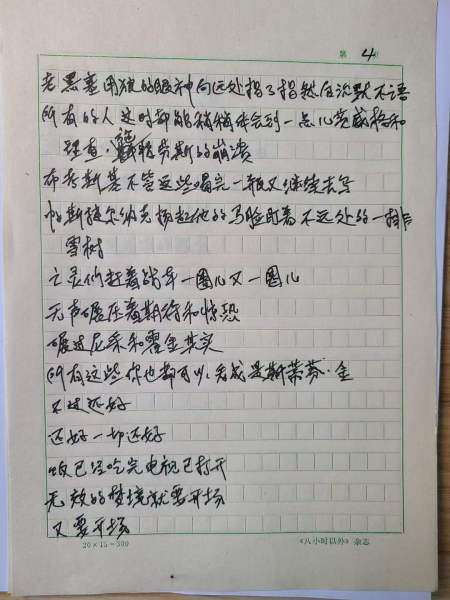 第 4
老黑塞用狼的眼神向远处指了指然后沉默不语
所有的人这时都能稍稍体会到一点儿茨威格和
理查·斯的崩溃
布考斯基不管这些喝完一瓶又继续去写
帕斯捷尔纳克扬起他的马脸盯着不远处的一排
雪树
亡灵们赶着战车一圈儿又一圈儿
无声碾压着期待和惊恐
碾过尼采和霍金其实
所有这些你也都可以看成是斯蒂芬·金
不过还好
还好一切还好
饭已经吃完电视已打开
无效的梦境就要开场
又要开场
20×15=300
《八小时以外》杂志